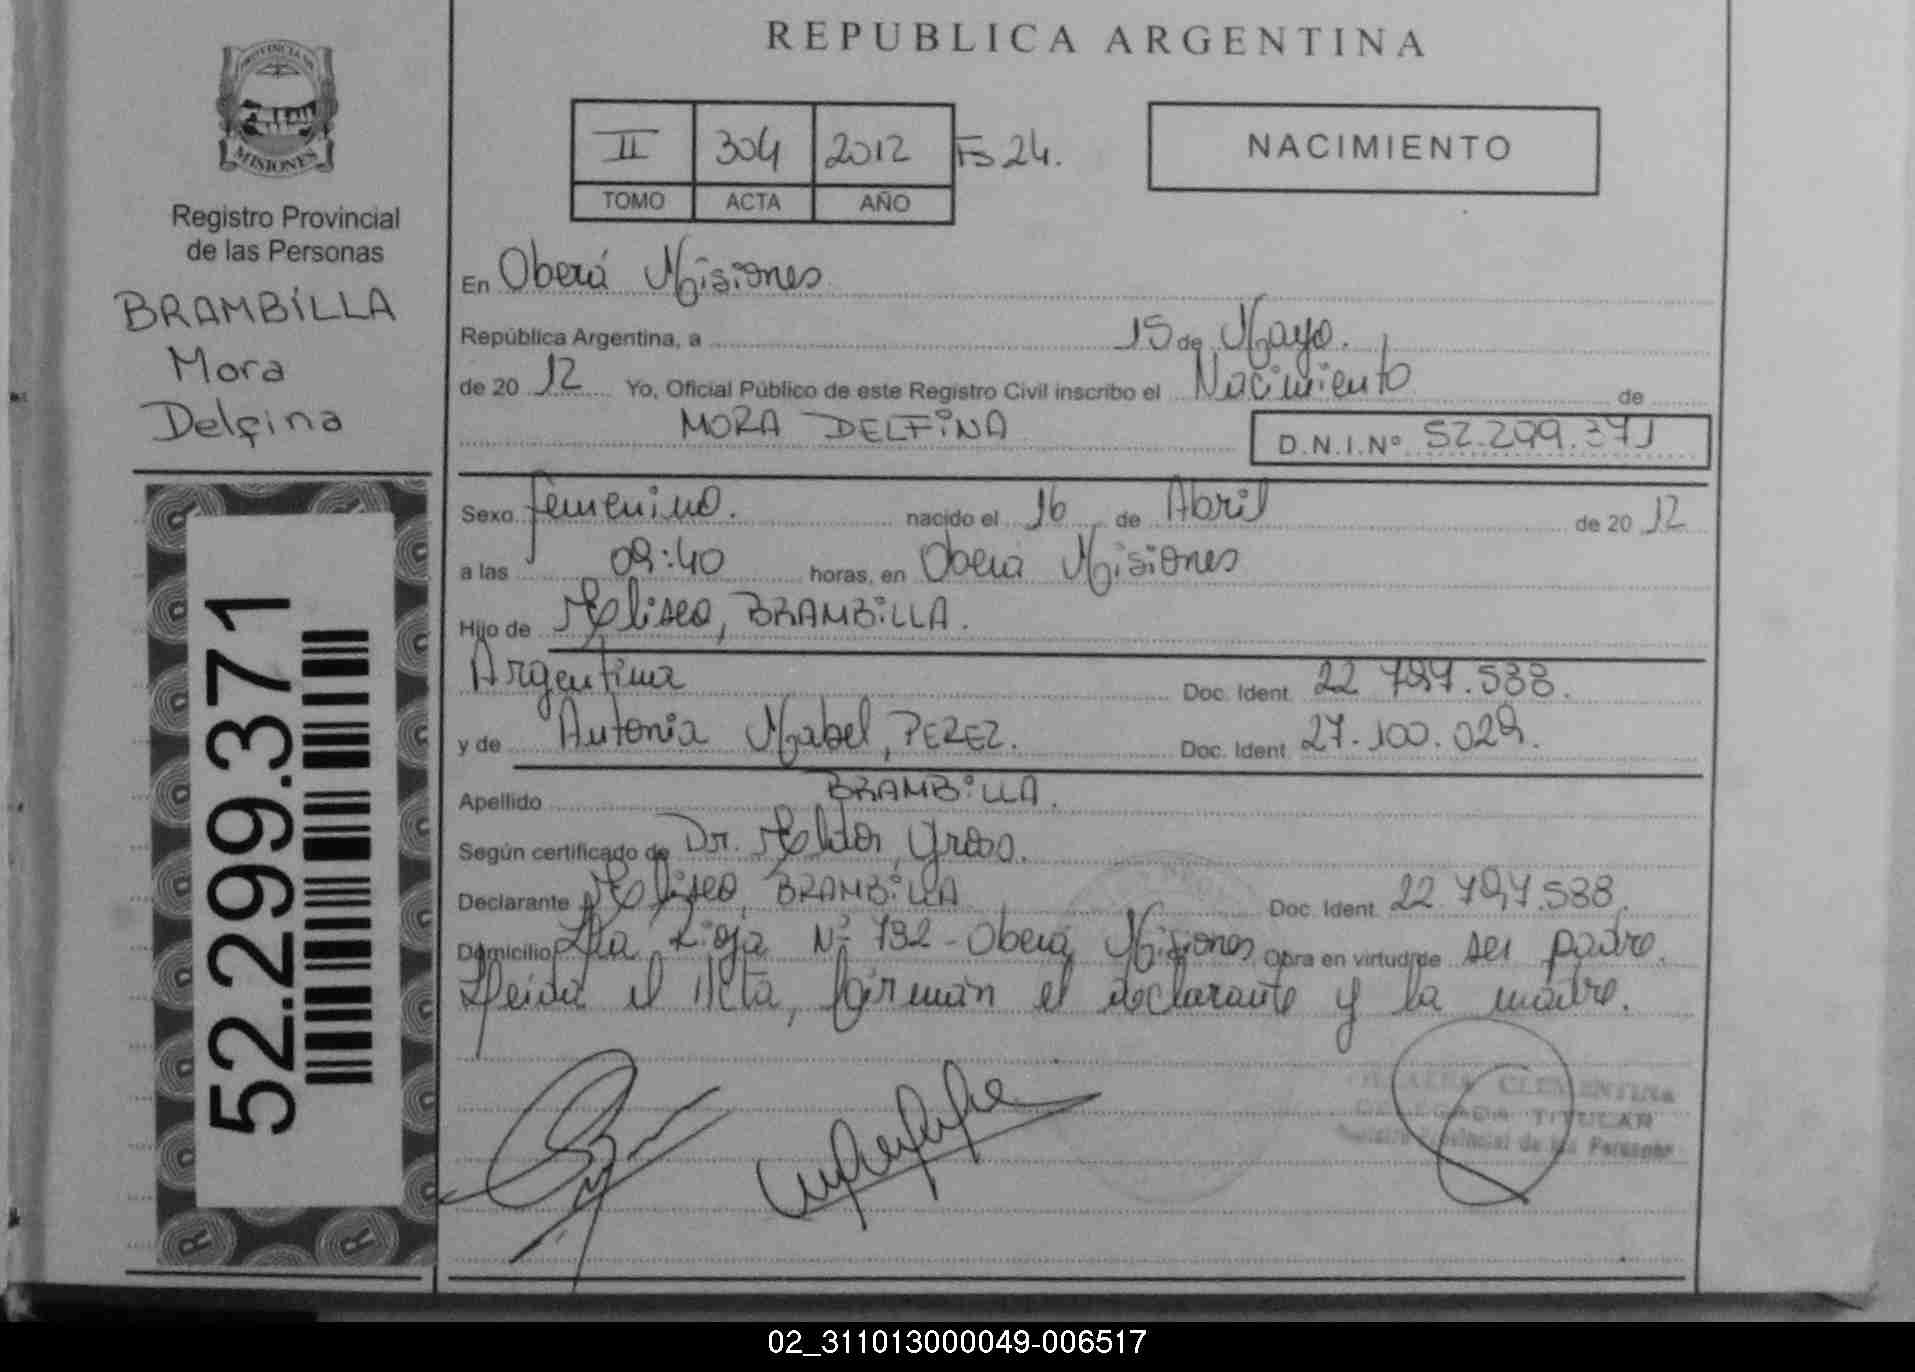 REPUBLICA ARGENTINA
PROVINCIA DE
MISIONES
Registro Provincial
de las Personas
BRAMBILLA
Mora
Delfina
52.299.371
II 304 2012 Fs 24.
TOMO ACTA AÑO
NACIMIENTO
En Oberá Misiones
República Argentina, a 15 de Mayo.
de 20 12 Yo, Oficial Público de este Registro Civil inscribo el Nacimiento de
MORA DELFINA D.N.I.Nº 52.299.371
Sexo femenino. nacido el 16 de Abril de 20 12
a las 09:40 horas, en Oberá Misiones
Hijo de Eliseo, BRAMBILLA.
Argentina Doc. Ident. 22.797.538.
y de Antonia Mabel, PEREZ. Doc. Ident. 27.100.029.
Apellido BRAMBILLA.
Según certificado de Dr. Gross.
Declarante Eliseo, BRAMBILLA Doc. Ident. 22.797.538.
Domicilio La Rioja Nº 792 - Oberá Misiones Obra en virtud de ser padre.
Leída el Acta, firman el declarante y la madre.
CLEMENTINA
DELEGADA TITULAR
Registro Provincial de las Personas
02_311013000049-006517